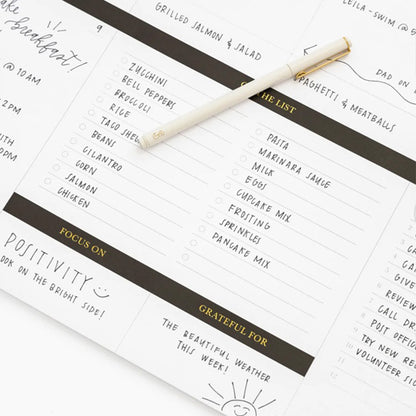 LEILA - SWIM @
GRILLED SALMON & SALAD
Breakfast!
9
DAD ON
SPAGHETTI & MEATBALLS
@ 10 AM
THE LIST
ZUCCHINI
BELL PEPPERS
BROCCOLI
RICE
TACO SHEL
BEANS
CILANTRO
CORN
SALMON
CHICKEN
PASTA
MARINARA SAUCE
MILK
EGGS
CUPCAKE MIX
FROSTING
SPRINKLES
PANCAKE MIX
FOCUS ON
POSITIVITY
OOK ON THE BRIGHT SIDE!
GRATEFUL FOR
THE BEAUTIFUL WEATHER
THIS WEEK!
REVIEW
CALL
POST OFFIC
TRY NEW RE
VOLUNTEER SI